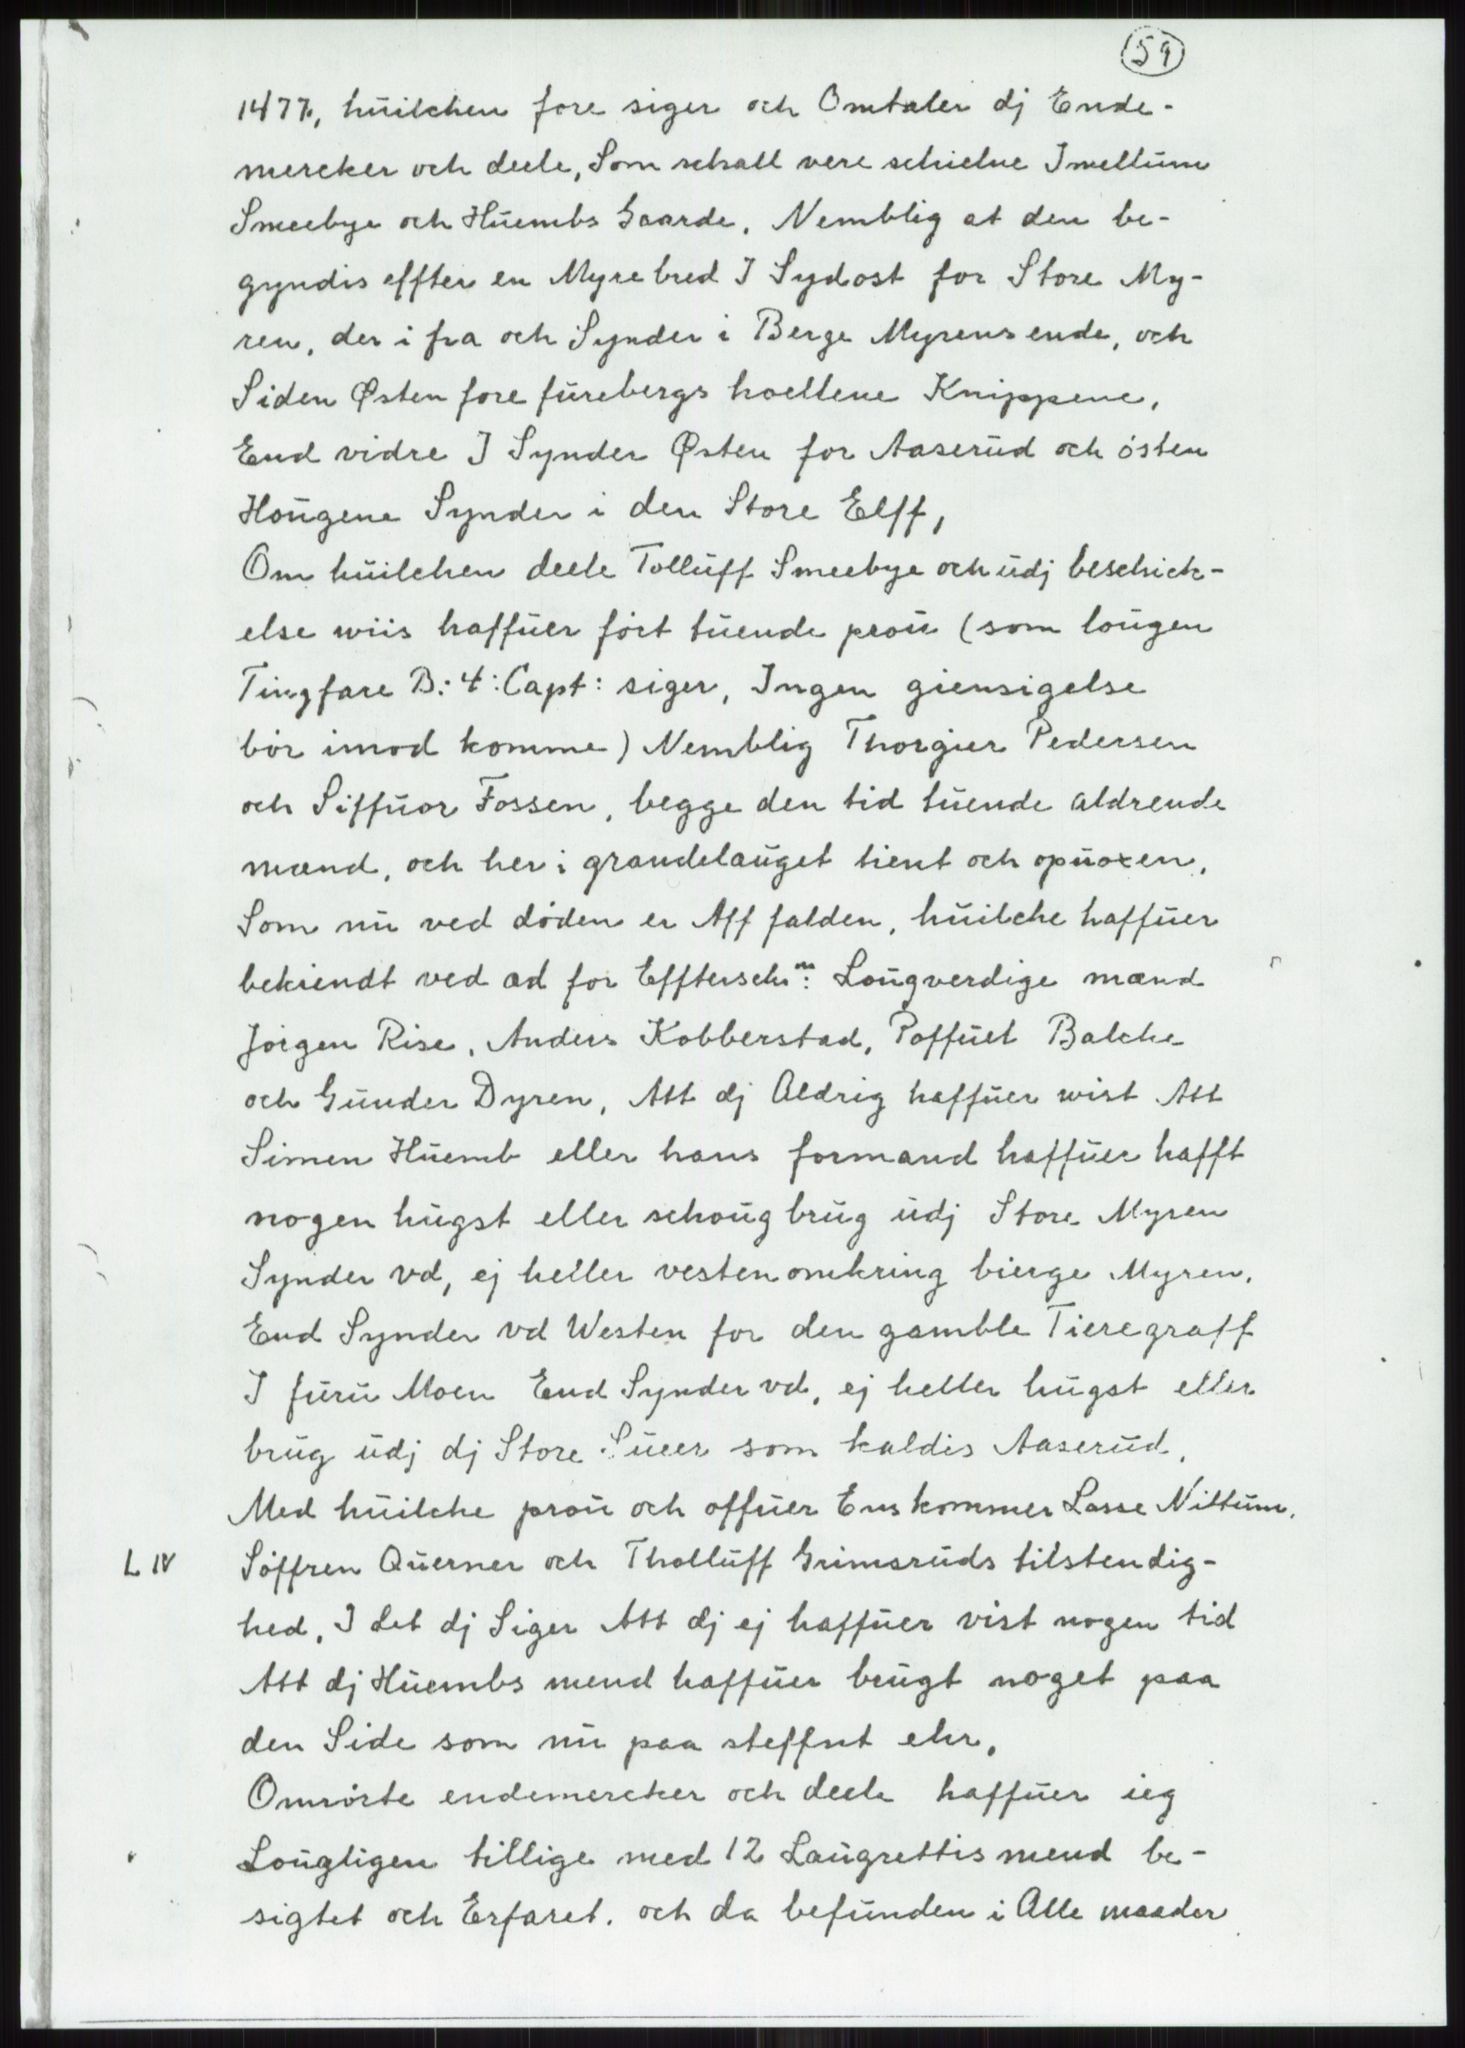 59
1477, huilchen fore siger och Omtaler dj Ende-
mercker och deele, Som schall vere schielne Imellum
Smeebye och Huembs Gaarde. Nemblig at den be-
gyndis effter en Myrebred I Sydost for Store My-
ren, der i fra och Synder i Berge Myrens ende, och
Siden Østen fore furebergs hoellene Knippene,
End vidre I Synder Østen for Aaserud och östen
Hougene Synder i den Store Elff,
Om huilchen deele Tolluff Smeebye och udj beschick-
else wiis haffuer fört tuende prou (som lougen
Tingfare B: 4: Capt: siger, Ingen giensigelse
bör imod komme) Nemblig Thorgier Pedersen
och Siffuor Fossen, begge den tid tuende aldrende
mænd, och her i grandelauget tient och opuoxen,
Som nu ved döden er Aff falden, huilche haffuer
bekiendt ved æd for Effterschne: Lougverdige mænd
Jörgen Rise, Anders Kobberstad, Poffuel Balche
och Gunder Dyren, Att dj Aldrig haffuer wist Att
Simen Huemb eller hans formand haffuer hafft
nogen hugst eller schoug brug udj Store Myren
Synder vd, ej heller vesten omkring bierge Myren,
End Synder vd Westen for den gamble Tieregraff
I furu Moen End Synder vd, ej heller hugst eller
brug udj dj Store Sueer som kaldis Aaserud,
Med huilche prou och offuer Ens kommer Lasse Nittum,
L IV Söffren Querner och Tholluff Grimsruds tilstendig-
hed, I det dj Siger Att dj ej haffuer vist nogen tid
Att dj Huembs mend haffuer brugt noget paa
den Side som nu paa steffnt ehr,
Omrörte endemercker och deele haffuer ieg
Lougligen tillige med 12 Laugrettis mend be-
sigtet och Erfaret, och da befunden i Alle maader